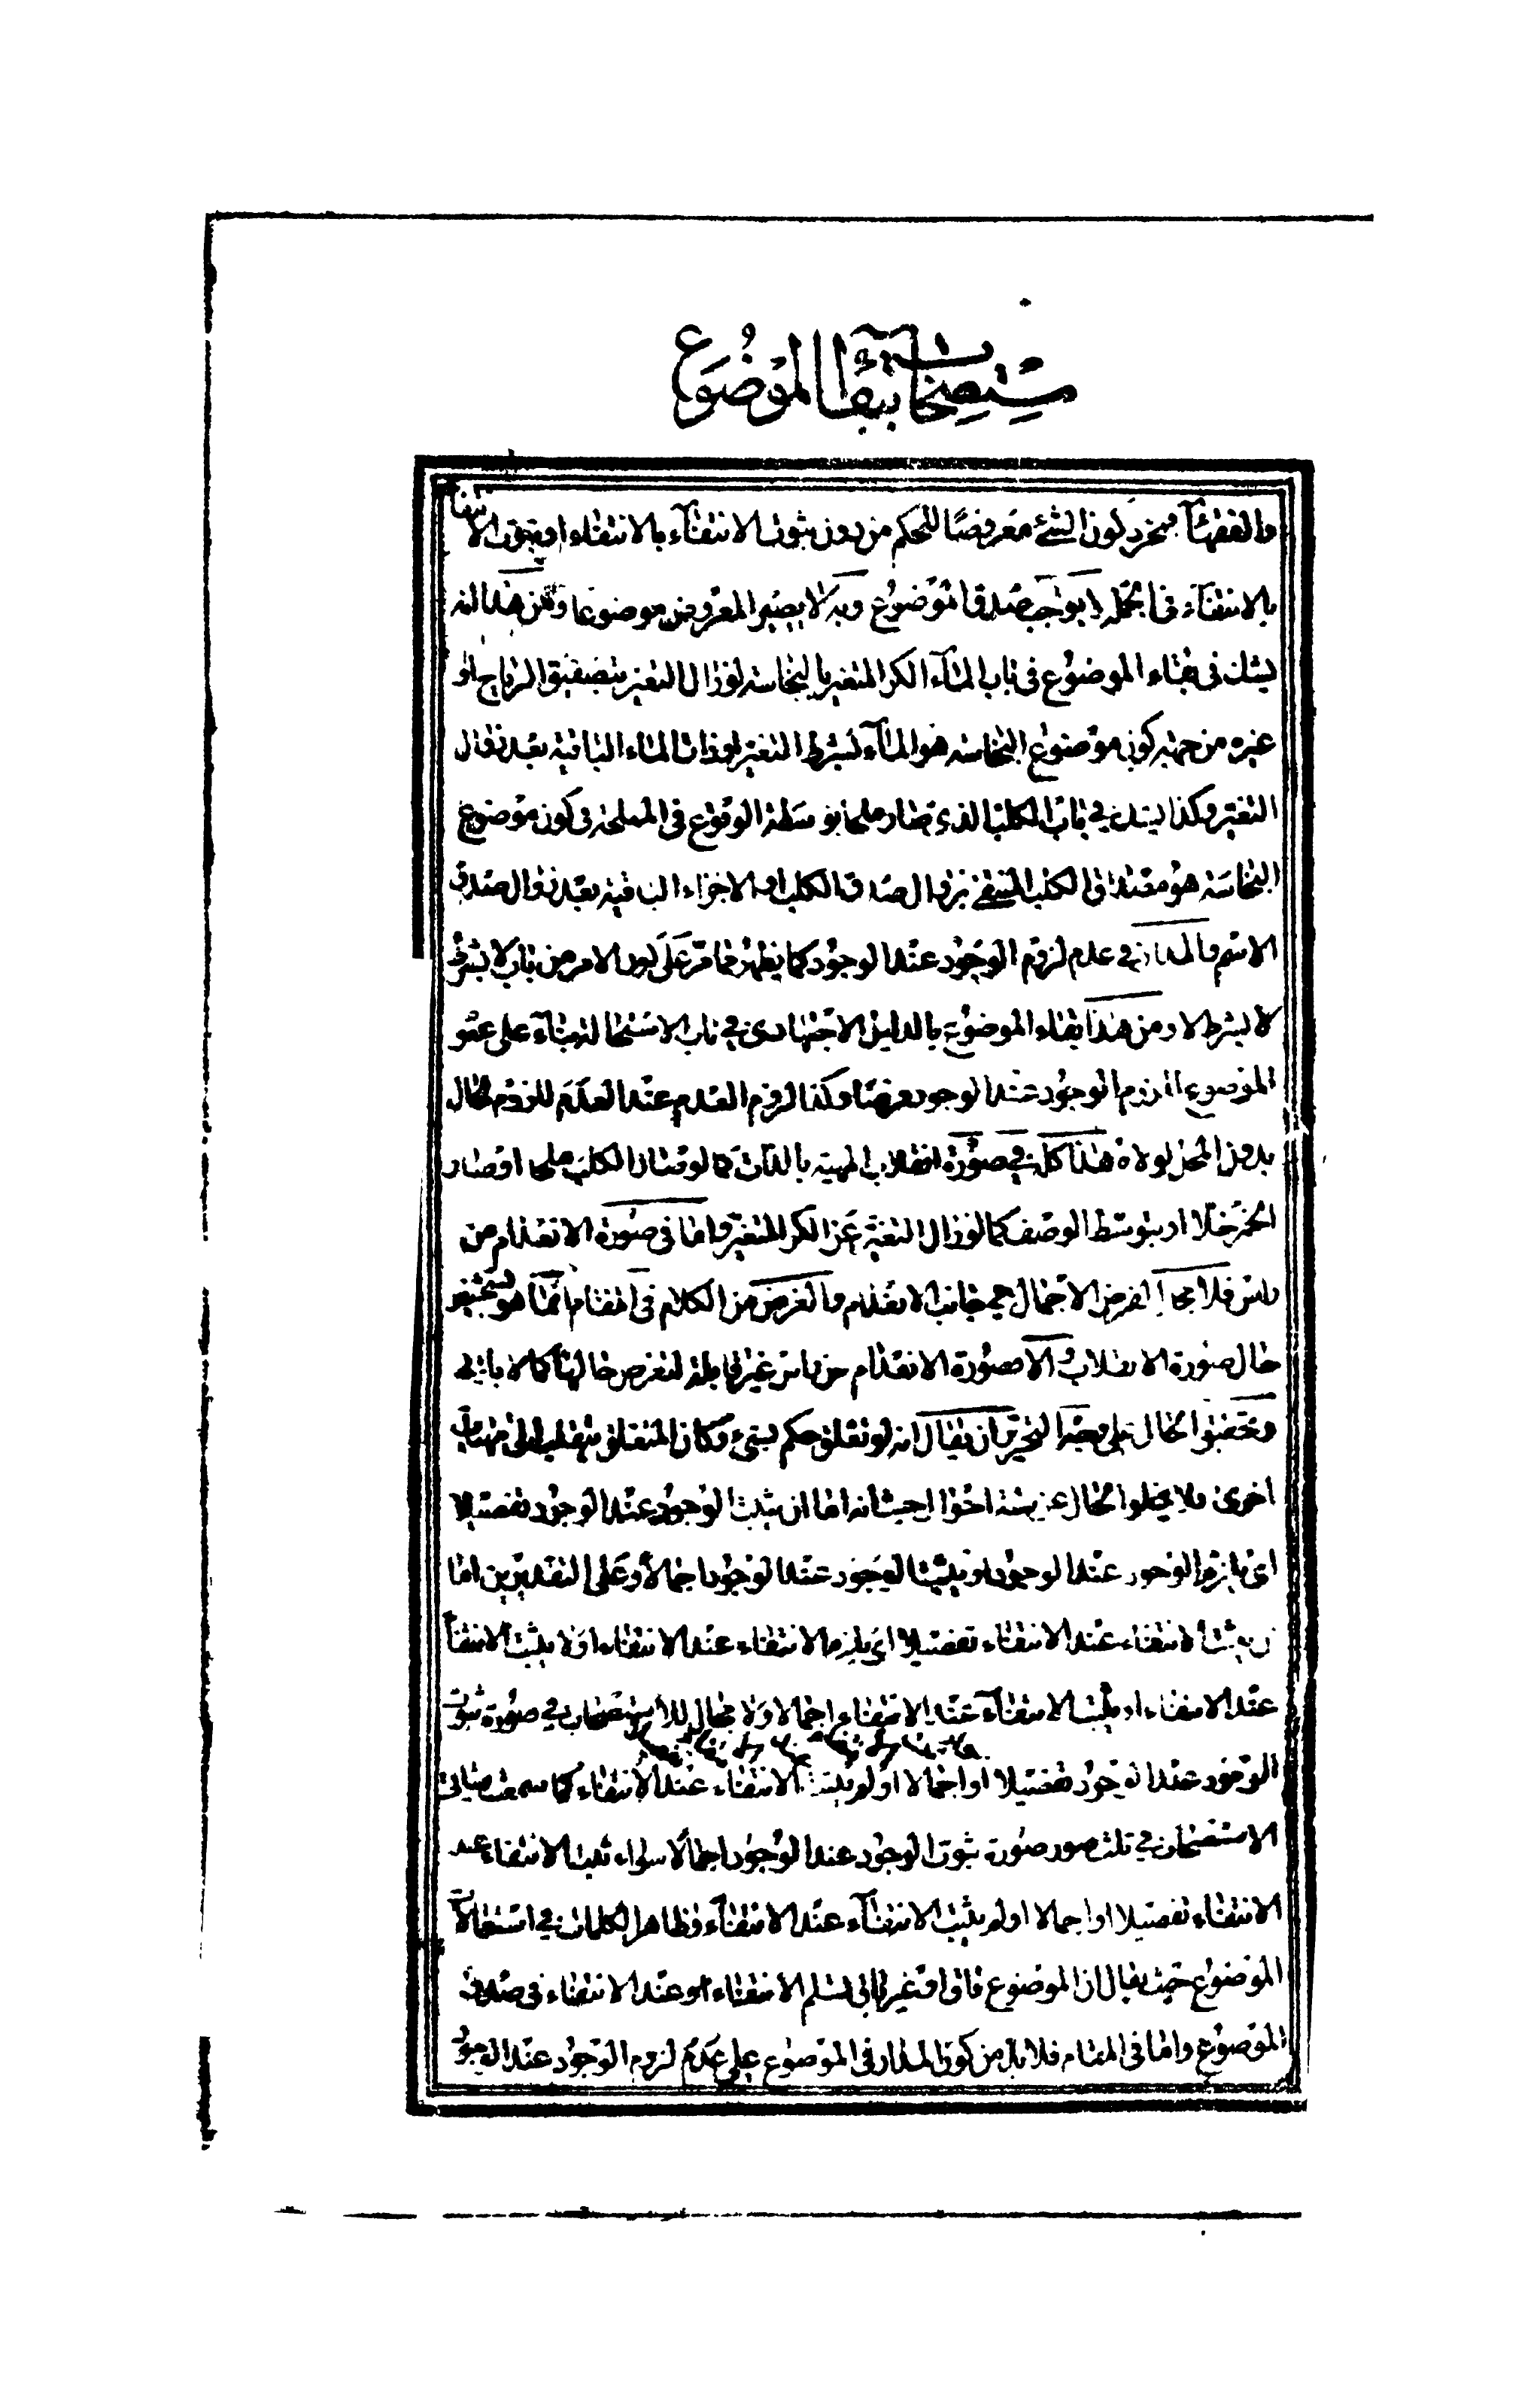 ستصحاب بقا الموضوع
والفقهاء بمجرد كون الشئ معروضا للحكم من دون ثبوت الانتفاء بالانتفاء او ثبوت الانتفاء
بالانتفاء في الجملة صدق الموضوع وبه لا يصير المعروض موضوعا ومن هذا انه
يشك في بقاء الموضوع في باب الماء الكر المتغير بالنجاسة لو زال التغير بتصفيق الرياح او
غيره من جهة كون موضوع النجاسة هو الماء بشرط التغير او ذات الماء الباقية بعد زوال
التغير وكذا يشك في باب الكلب الذي صار ملحا بواسطة الوقوع في المملحة في كون موضوع
النجاسة هو الكلب المنتفى بزوال صدق الكلب او الاجزاء الباقية بعد زوال صدق
الاسم والمدار في عدم لزوم الوجود عند الوجود كما يظهر مما مر على كون الامر من باب لا بشرط
لا بشرط لا ومن هذا بقاء الموضوع بالدليل الاجتهادى في باب الاستحالة بناء على
الموضوع لزوم الوجود عند الوجود وكذا لزوم العدم عند العدم للزوم الحال
بدون المحل لولاه هذا كله في صورة انقلاب المهية بالذات كما لو صار الكلب ملحا او صار
الخمر خلا او بتوسط الوصف كما لو زال التغير عن الكر المتغير واما في صورة الانعدام من
راس فلا مجال لفرض الاجمال في جانب الانعدام والغرض من الكلام في المقام انما هو تشخيص
حال صورة الانقلاب والا فصورة الانعدام من راس غير قابلة لتعرض حالها كما لا باس به
وتحقيق الحال على وجه التحرير ان يقال انه لو تعلق حكم بشئ وكان المتعلق ينقلب الى مهيات
اخرى فلا يخلوا الحال عن ستة احوال حيث انه اما ان يثبت الوجود عند الوجود تفصيلا
اى يلزم الوجود عند الوجود او يثبت الوجود عند الوجود اجمالا وعلى التقديرين اما
ان يثبت الانتفاء عند الانتفاء تفصيلا اى يلزم الانتفاء عند الانتفاء او لا يثبت الانتفاء
عند الانتفاء او يثبت الانتفاء عند الانتفاء اجمالا ولا مجال للاستصحاب في صورة ثبوت
الوجود عند الوجود تفصيلا او اجمالا او لم يثبت الانتفاء عند الانتفاء كما سمعت
الاستصحاب في ثلث صور صورة ثبوت الوجود عند الوجود اجمالا سواء ثبت الانتفاء عند
الانتفاء تفصيلا او اجمالا او لم يثبت الانتفاء عند الانتفاء وظاهر الكلمات في استعمالات
الموضوع حيث يقال ان الموضوع باق او غير باق تسلم الانتفاء عند الانتفاء في صدق
الموضوع واما في المقام فلا بد من كون المدار في الموضوع على عدم لزوم الوجود عند الوجود